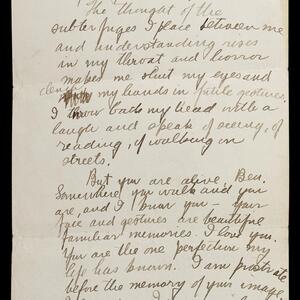 The thought of the
subterfuges I place between me
and understanding rises
in my throat and horror
makes me shut my eyes and
clench my hands in futile gestures.
I throw back my head with a
laugh and speak of seeing, of
reading, of walking on
streets.
But you are alive, Bea.
Somewhere you walk and you
are, and I know you – your
face and gestures are beautiful
familiar memories. I love you.
You are the one perfection my
life has known. I am prostrate
before the memory of your image